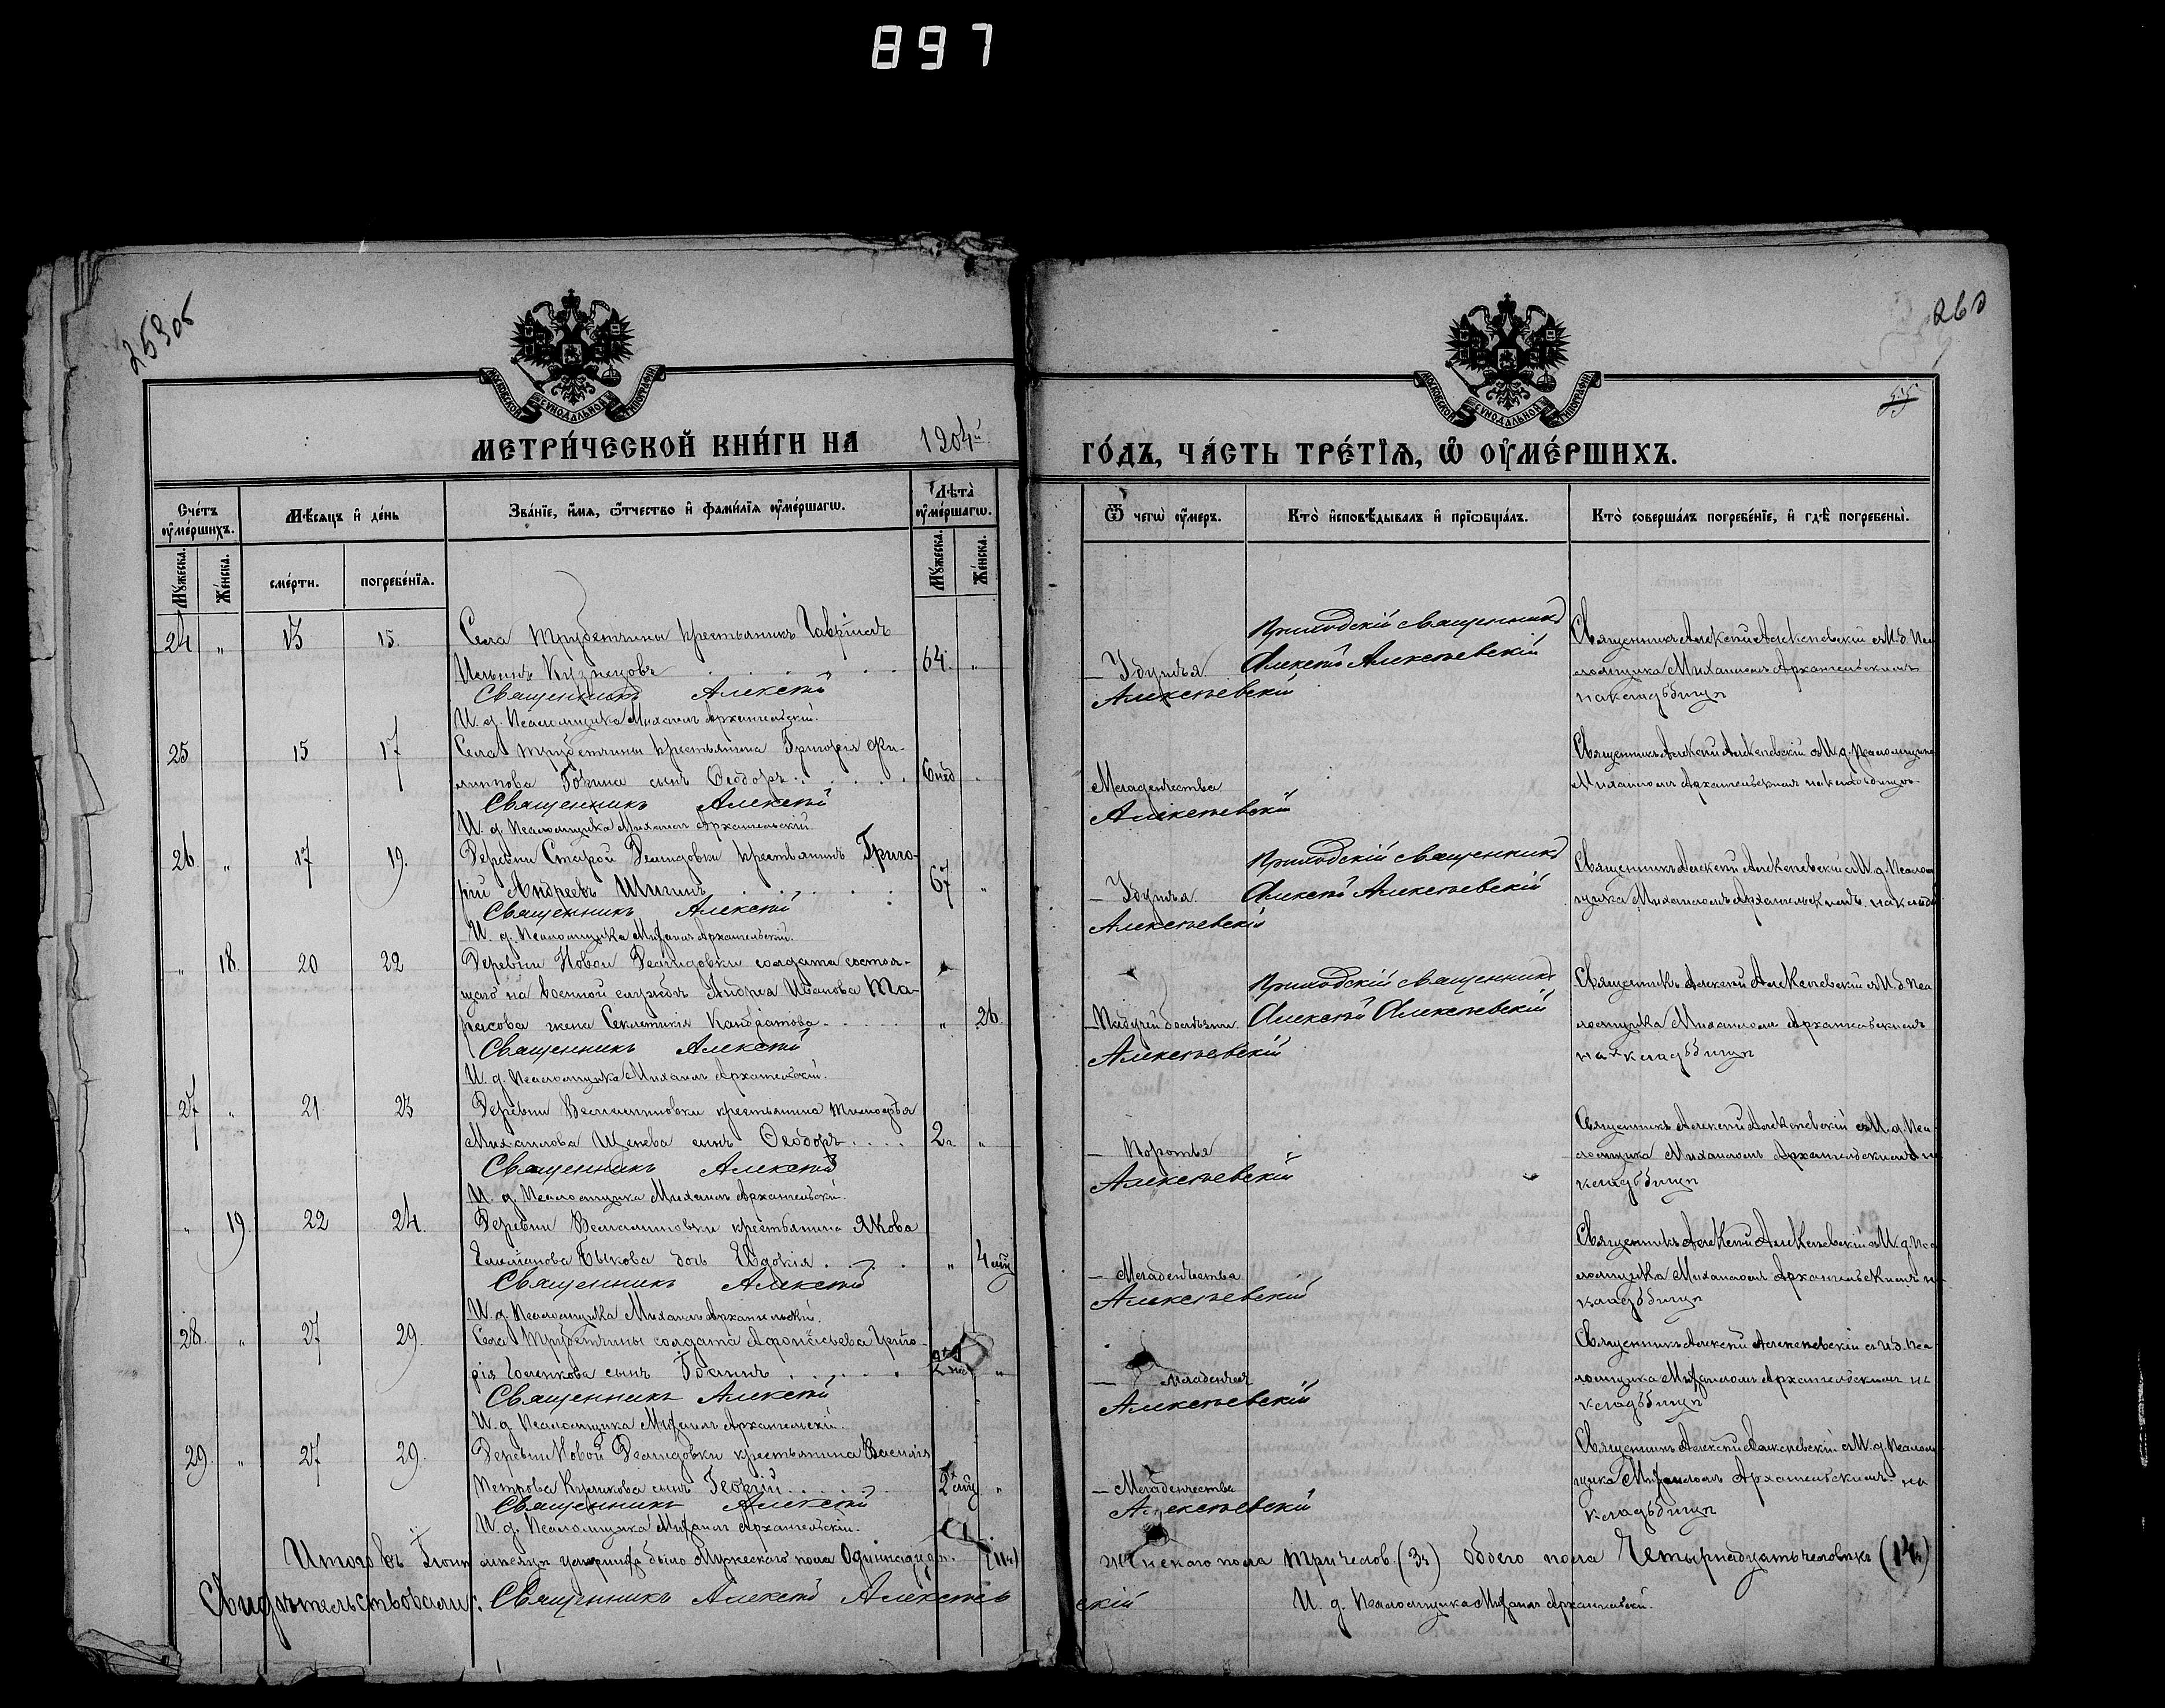 897
259 об
260
55
МОСКОВСКОЙ СѴНОДАЛЬНОЙ ТИПОГРАФІИ
МОСКОВСКОЙ СѴНОДАЛЬНОЙ ТИПОГРАФІИ
МЕТРИ́ЧЕСКОЙ КНИ́ГИ НА 1904й
ГО́ДЪ, ЧА́СТЬ ТРЕ́ТІѦ, Ѽ ОУ҆МЕ́РШИХЪ.
Сче́тъ оу҆ме́ршихъ.
Мѣ́сяцъ и҆ де́нь
Зва́нїе, и҆́мя, ѻ҆́тчество и҆ фами́лїя оу҆ме́ршагѡ.
Лѣ́та оу҆ме́ршагѡ.
Ѿ чегѡ̀ оу҆́меръ.
Кто̀ и҆сповѣ́дывалъ и҆ прїѡбща́лъ.
Кто̀ соверша́лъ погребе́нїе, и҆ гдѣ̀ погребены̀.
Мꙋ́жеска.
Же́нска.
сме́рти.
погребе́нїя.
Мꙋ́жеска.
Же́нска.
24 " 13 15. Села Трубетчины крестьянинъ Гавріилъ
Ильинъ Кузнецовъ 64. "
Священникъ Алексѣй
И. д. Псаломщика Михаилъ Архангельскій.
— Удушья
Алексѣевскій
Приходскій священникъ
Алексѣй Алексѣевскій
Священникъ Алексѣй Алексѣевскій съ И. д. Пса
ломщика Михаиломъ Архангельскимъ
на кладбищѣ
25 15 17 Села Трубетчины крестьянина Григорія Фи-
липпова сынъ Ѳеодоръ 6 нед "
Священникъ Алексѣй
И. д. Псаломщика Михаилъ Архангельскій
Младенчества
Алексѣевскій
Священникъ Алексѣй Алексѣевскій съ И. д. Псаломщика
Михаиломъ Архангельскимъ на кладбищѣ
26. " 17 19. Деревни Старой Демидовки крестьянинъ Григо-
рій Андреевъ Шигинъ 67 "
Священникъ Алексѣй
И. д. Псаломщика Михаилъ Архангельскій.
— Удушья
Алексѣевскій
Приходскій священникъ
Алексѣй Алексѣевскій
Священникъ Алексѣй Алексѣевскій съ И. д. Псалом
щика Михаиломъ Архангельскимъ на кладб
" 18. 20 22 Деревни Новой Демидовки солдата состоя-
щаго на военной службѣ Андрея Иванова Та-
расова жена Секлетикія " 26.
Священникъ Алексѣй
И. д. Псаломщика Михаилъ Архангельскій.
— Падучей болѣзни
Алексѣевскій
Приходскій священникъ
Алексѣй Алексѣевскій
Священникъ Алексѣй Алексѣевскій съ И. д. Пса
ломщика Михаиломъ Архангельскимъ
на кладбищѣ
27 " 21 23 Деревни крестьянина Тимоѳея
Михаилова сынъ Ѳеодоръ 2 г. "
Священникъ Алексѣй
И. д. Псаломщика Михаилъ Архангельскій.
—
Алексѣевскій
Священникъ Алексѣй Алексѣевскій съ И. д. Пса
ломщика Михаиломъ Архангельскимъ на
кладбищѣ
" 19. 22 24. Деревни крестьянина Якова
Быкова дочь Евдокія " 4 мѣс
Священникъ Алексѣй
И. д. Псаломщика Михаилъ Архангельскій.
— Младенчества
Алексѣевскій
Священникъ Алексѣй Алексѣевскій съ И. д. Пса
ломщика Михаиломъ Архангельскимъ на
кладбищѣ
28. " 27 29. Села Трубетчины солдата Григо-
рія сынъ "
Священникъ Алексѣй
И. д. Псаломщика Михаилъ Архангельскій.
—
Алексѣевскій
Священникъ Алексѣй Алексѣевскій съ И. д. Пса
ломщика Михаиломъ Архангельскимъ на
кладбищѣ
29. " 27 29. Деревни Новой Демидовки крестьянина Василія
Петрова Куликова сынъ Георгій 2 мѣс "
Священникъ Алексѣй
И. д. Псаломщика Михаилъ Архангельскій.
— Младенчества
Алексѣевскій
Священникъ Алексѣй Алексѣевскій съ И. д. Псалом
щика Михаиломъ Архангельскимъ на
кладбищѣ
Итого въ Іюнѣ мѣсяцѣ умершихъ было Мужескаго пола Одиннадцать (11 ч) Женскаго пола три челов. (3 ч) обоего пола Четырнадцать человѣкъ (14 ч)
Свидѣтельствовали: Священникъ Алексѣй Алексѣевскій И. д. Псаломщика Михаилъ Архангельскій.